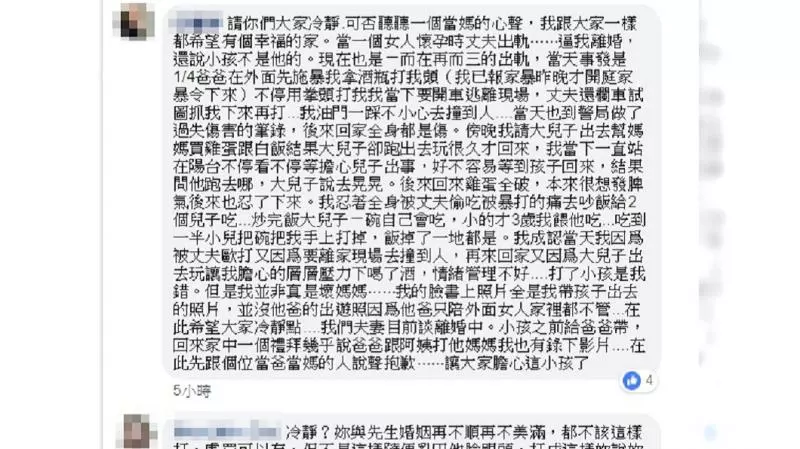 請你們大家冷靜.可否聽聽一個當媽的心聲，我跟大家一樣
都希望有個幸福的家。當一個女人懷孕時丈夫出軌⋯⋯逼我離婚，
還說小孩不是他的。現在也是一而在再而三的出軌，當天事發是
1/4爸爸在外面先施暴我拿酒瓶打我頭（我已報家暴昨晚才開庭家
暴令下來）不停用拳頭打我我當下要開車逃離現場，丈夫還欄車試
圖抓我下來再打...我油門一踩不小心去撞到人....當天也到警局做了
過失傷害的筆錄，後來回家全身都是傷。傍晚我請大兒子出去幫媽
媽買雞蛋跟白飯結果大兒子卻跑出去玩很久才回來，我當下一直站
在陽台不停看不停等擔心兒子出事，好不容易等到孩子回來，結果
問他跑去哪，大兒子說去晃晃。後來回來雞蛋全破，本來很想發脾
氣後來也忍了下來。我忍著全身被丈夫偷吃被暴打的痛去吵飯給2
個兒子吃...炒完飯大兒子一碗自己會吃，小的才3歲我餵他吃...吃到
一半小兒把碗把我手上打掉，飯掉了一地都是。我成認當天我因為
被丈夫歐打又因為要離家現場去撞到人，再來回家又因為大兒子出
去玩讓我擔心的層層壓力下喝了酒，情緒管理不好....打了小孩是我
錯。但是我並非真是壞媽媽⋯⋯我的臉書上照片全是我帶孩子出去
的照片，並沒他爸的出遊照因為他爸只陪外面女人家裡都不管...在
此希望大家冷靜點....我們夫妻目前談離婚中。小孩之前給爸爸帶，
回來家中一個禮拜幾乎說爸爸跟阿姨打他媽媽我也有錄下影片....在
此先跟個位當爸當媽的人說聲抱歉⋯⋯讓大家擔心這小孩了
4
5小時
冷靜？妳與先生婚姻再不順再不美滿，都不該這樣